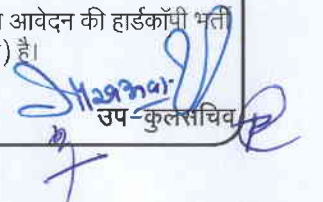 आवेदन की हार्डकॉपी भर्ती
) है।
उप-कुलसचिव